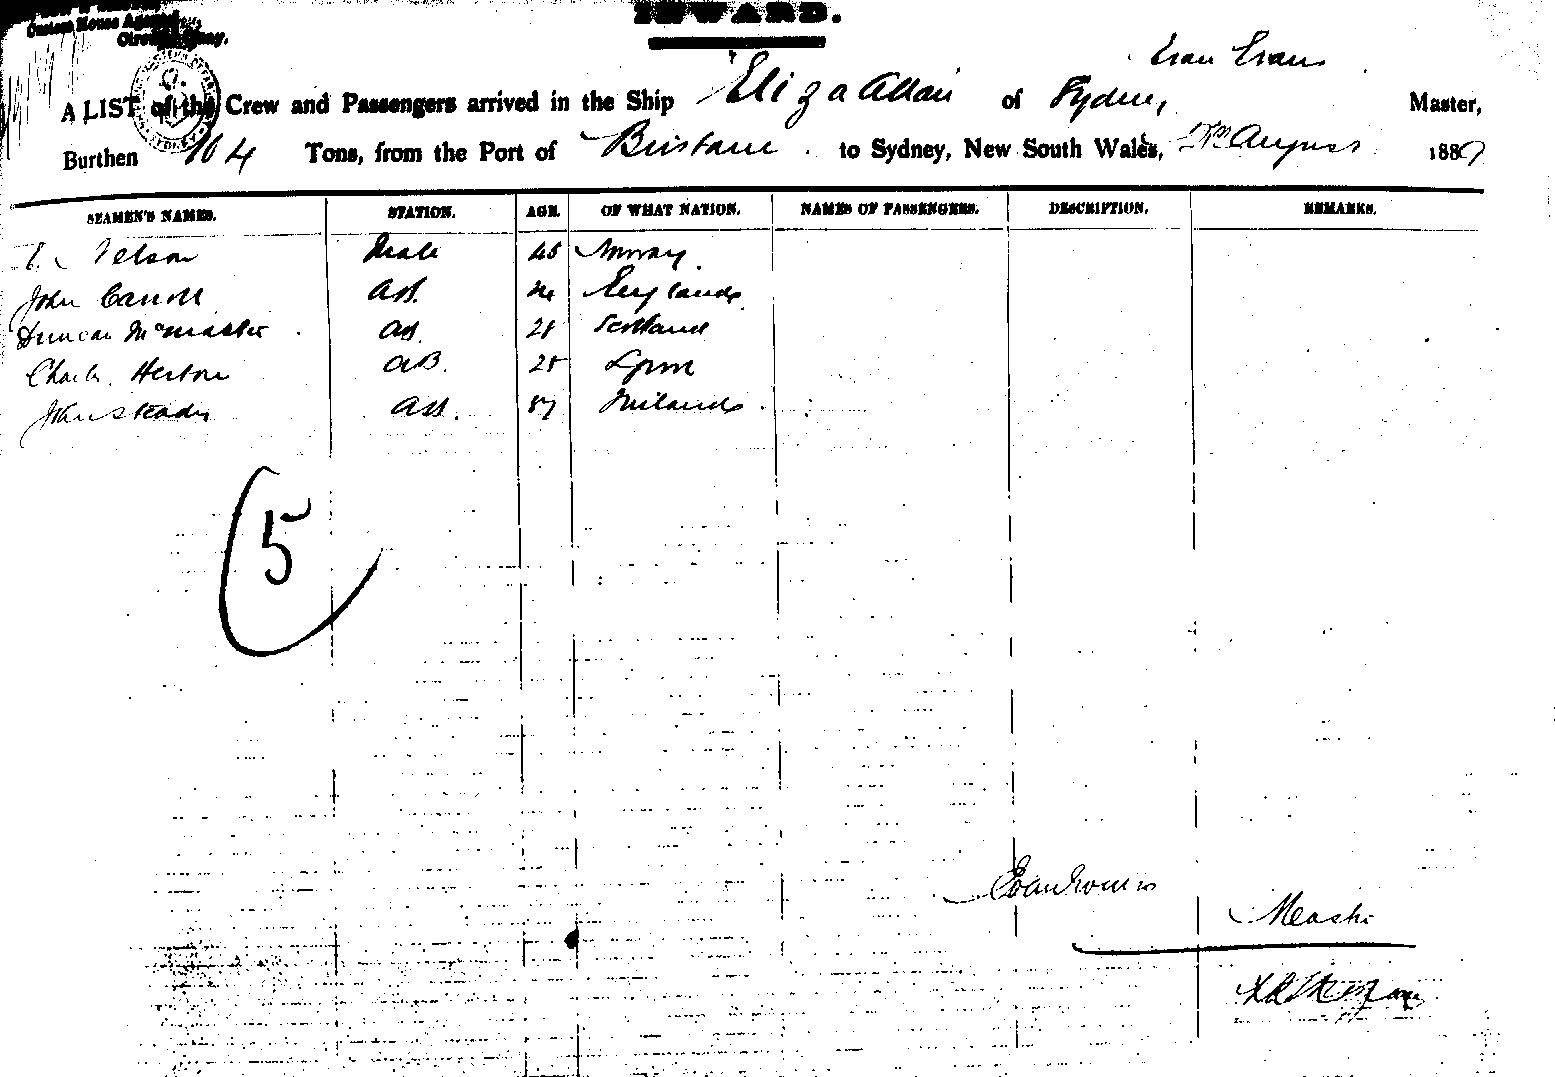 Custom House Agents,
Circular Quay.
INWARD.
Evan Evans
A LIST of the Crew and Passengers arrived in the Ship Eliza Allan of Sydney, Master,
Burthen 104 Tons, from the Port of Brisbane to Sydney, New South Wales, August 188
SEAMEN'S NAMES. STATION. AGE. OF WHAT NATION. NAMES OF PASSENGERS. DESCRIPTION. REMARKS.
Nelson Mate 45 Norway
John Carroll AB. England
Duncan McMaster AB 28 Scotland
Charles AB. 25
John AB. 57
5
Evan Evans
Master